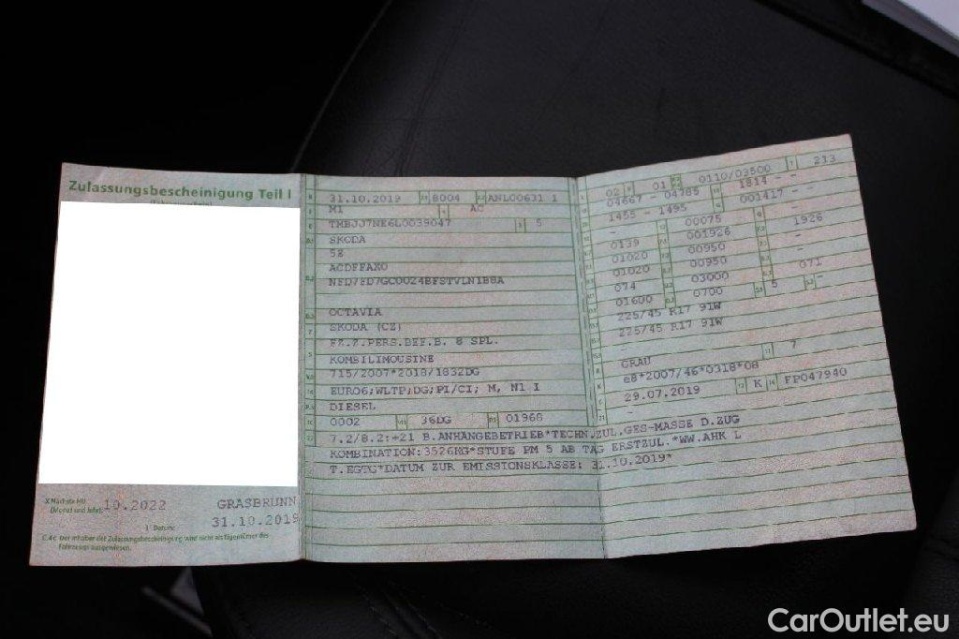 Zulassungsbescheinigung Teil I
10.2022
GRASBRUNN
31.10.2019
31.10.2019 8004 ANL00631 1
M1 AC
TMBJJ7NE6L0039047 5
SKODA
5E
ACDFFAX0
NFD7FD7GC0024BFSTVLN1B8A
OCTAVIA
SKODA (CZ)
FZ.Z.PERS.BEF.B. 8 SPL.
KOMBILIMOUSINE
715/2007*2018/1832DG
EURO6;WLTP;DG;PI/CI; M, N1 I
DIESEL
0002 36DG 01968
7.2/8.2:+21 B.ANHÄNGEBETRIEB*TECHN.ZUL.GES-MASSE D.ZUG
KOMBINATION:3526KG*STUFE PM 5 AB TAG ERSTZUL.*WW.AHK L
T.EGTG*DATUM ZUR EMISSIONSKLASSE: 31.10.2019*
02 01 0110/03500 213
04667 - 04785 1814 - -
1455 - 1495 001417 -
- 00075 1926
0139 001926 - -
01020 00950 -
01020 00950 -
074 03000 071
01600 0700 5 -
225/45 R17 91W
225/45 R17 91W
GRAU 7
e8*2007/46*0318*08
29.07.2019 K FP047940
-
CarOutlet.eu